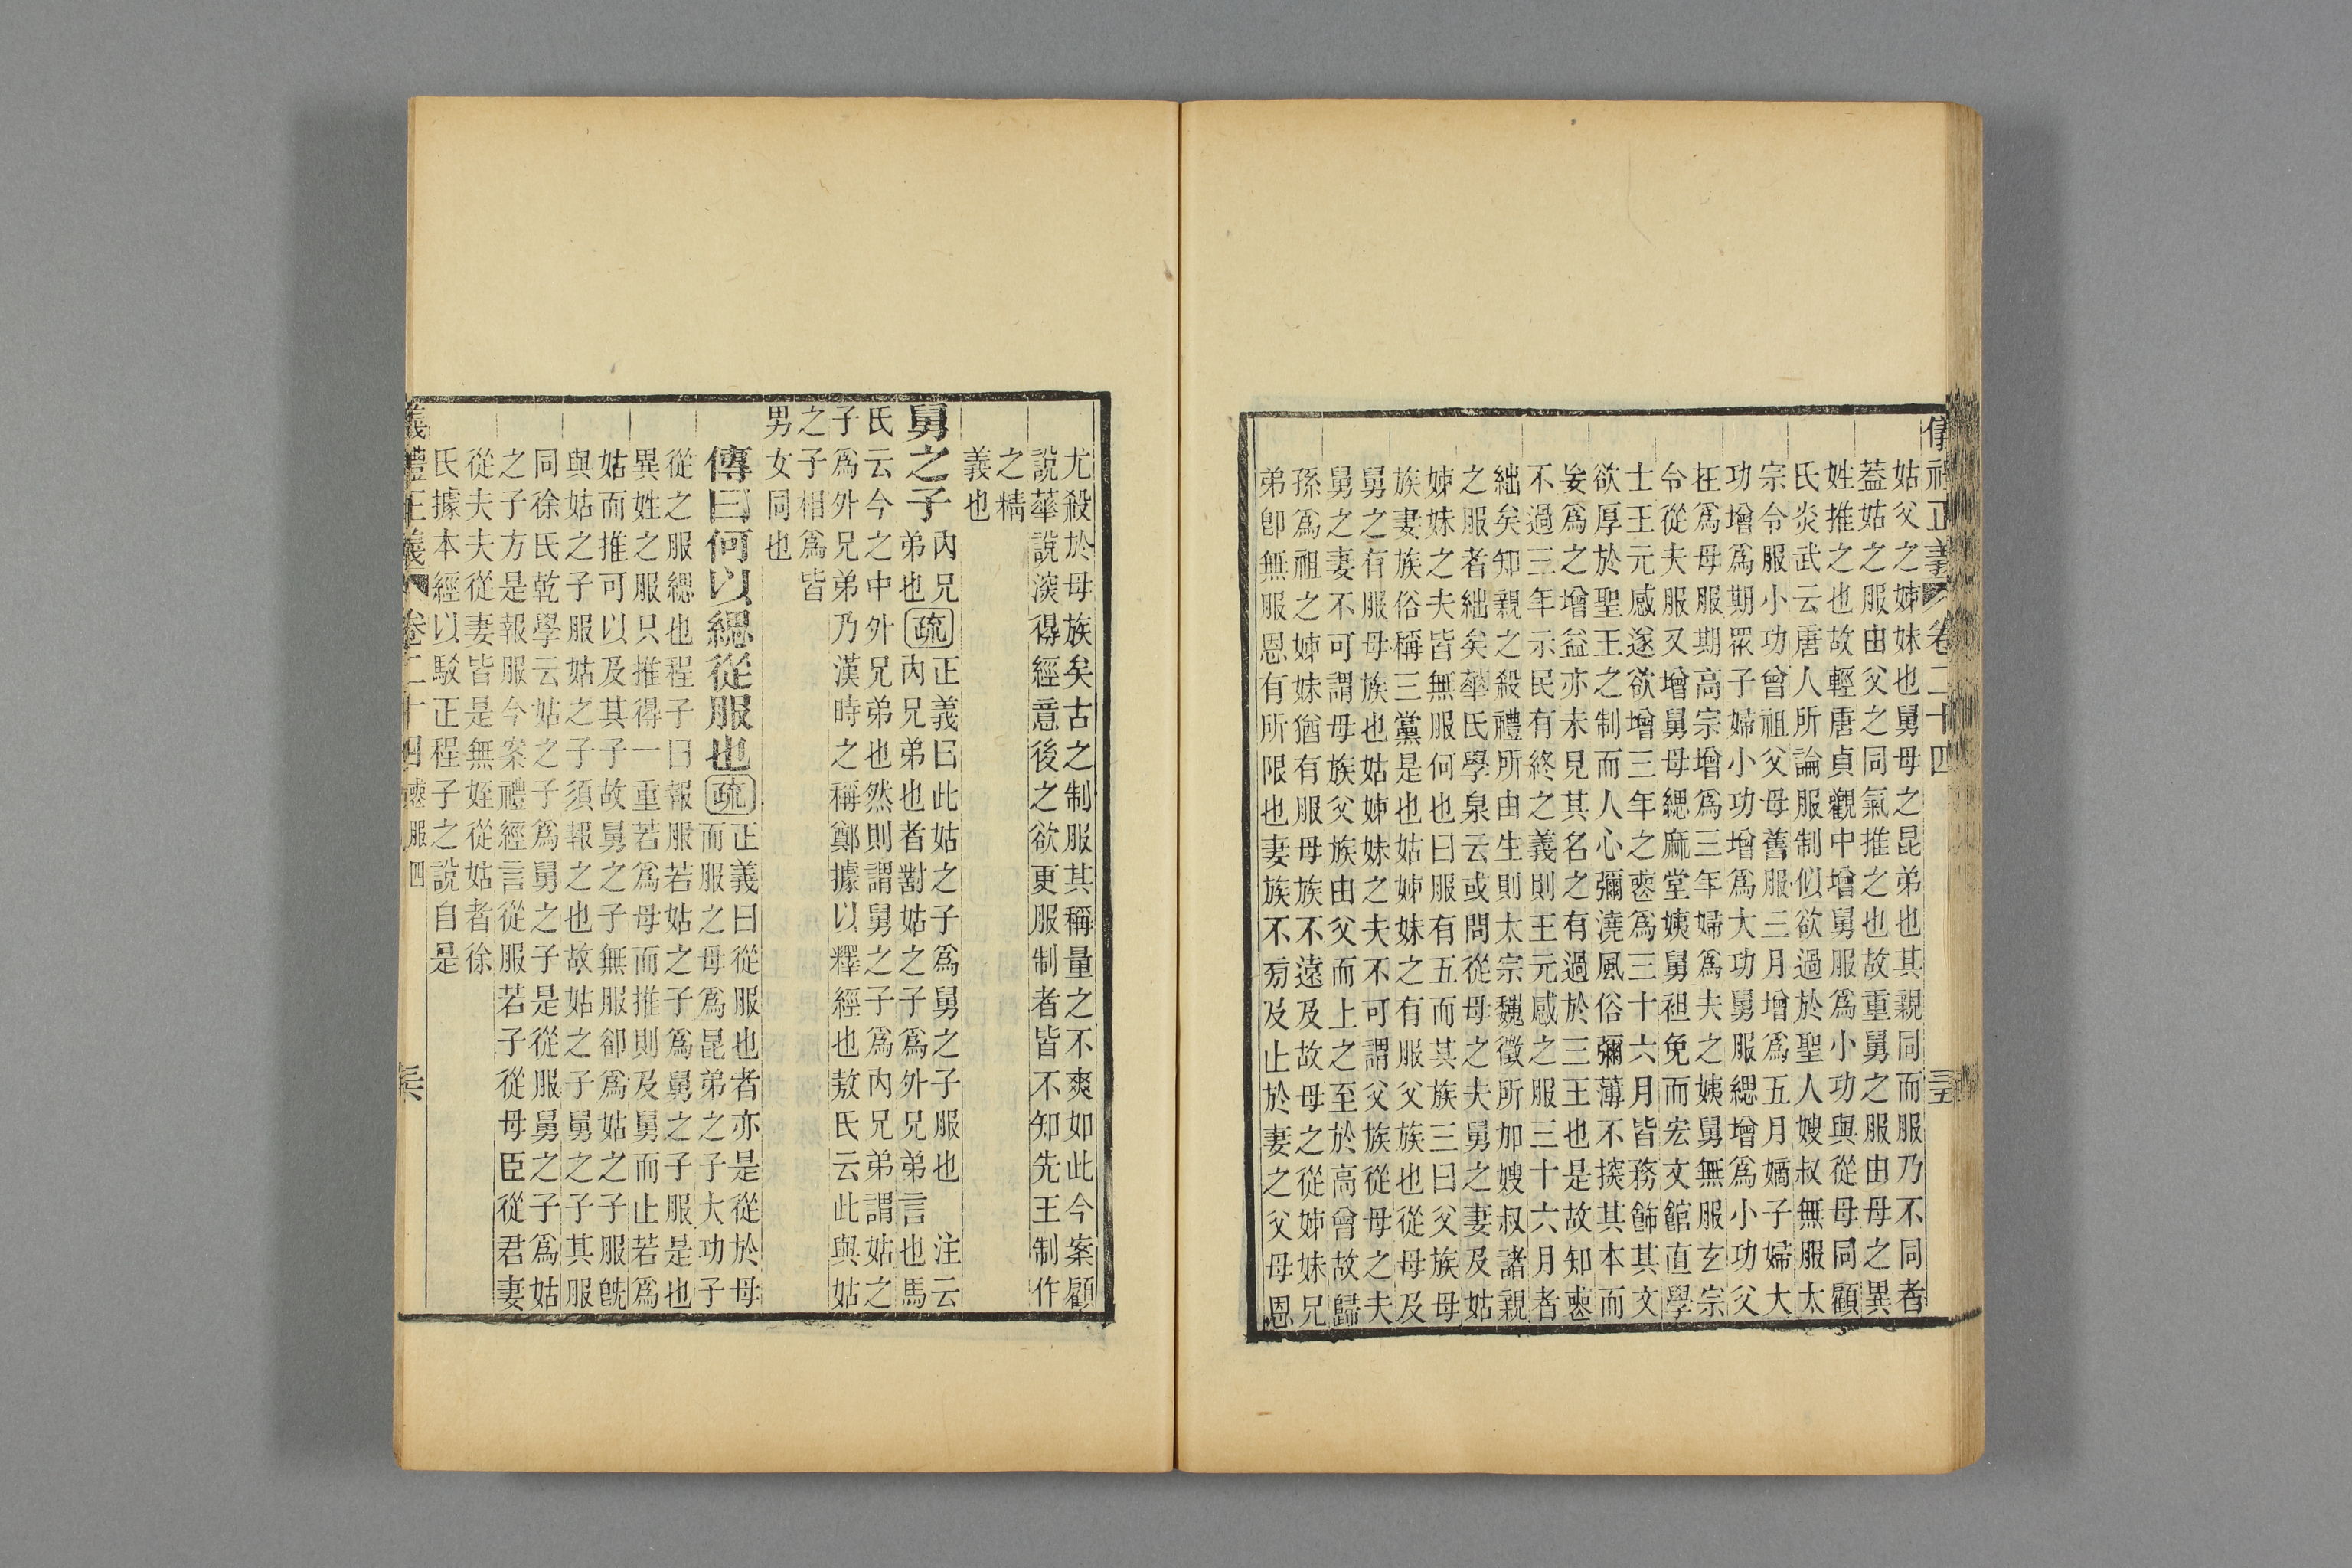 儀禮正義 卷二十四 三五
姑父之姊妹也舅母之昆弟也其親同而服乃不同者
葢姑之服由父之同氣推之也故重舅之服由母之異
姓推之也故輕唐貞觀中增舅服爲小功與從母同顧
氏炎武云唐人所論服制似欲過於聖人嫂叔無服太
宗令服小功曾祖父母舊服三月增爲五月嫡子婦大
功增爲期眾子婦小功增爲大功舅服緦增爲小功父
在爲母服期高宗增爲三年婦爲夫之姨舅無服玄宗
令從夫服又增舅母緦麻堂姨舅袒免而宏文館直學
士王元感遂欲增三年之喪爲三十六月皆務飾其文
欲厚於聖王之制而人心彌澆風俗彌薄不揆其本而
妄爲之增益亦未見其名之有過於三王也是故知喪
不過三年示民有終之義則王元感之服三十六月者
絀矣知親之殺禮所由生則太宗魏徵所加嫂叔諸親
之服者絀矣蕐氏學泉云或問從母之夫舅之妻及姑
姊妹之夫皆無服何也曰服有五而其族三曰父族母
族妻族俗稱三黨是也姑姊妹之有服父族也從母及
舅之有服母族也姑姊妹之夫不可謂父族從母之夫
舅之妻不可謂母族父族由父而上之至於高曾故歸
孫爲祖之姊妹猶有服母族不遠及故母之從姊妹兄
弟卽無服恩有所限也妻族不㫄及止於妻之父母恩
尤殺於母族矣古之制服其稱量之不爽如此今案顧
說蕐說㴱得經意後之欲更服制者皆不知先王制作
之精
義也
舅之子 內兄弟也 疏 正義曰此姑之子爲舅之子服也 注云
內兄弟也者對姑之子爲外兄弟言也馬
氏云今之中外兄弟也然則謂舅之子爲內兄弟謂姑之
子爲外兄弟乃漢時之稱鄭據以釋經也敖氏云此與姑
之子相爲皆
男女同也
傳曰何以緦從服也 疏 正義曰從服也者亦是從於母
而服之母爲昆弟之子大功子
從之服緦也程子曰報服若姑之子爲舅之子服是也
異姓之服只推得一重若爲母而推則及舅而止若爲
姑而推可以及其子故舅之子無服卻爲姑之子服旣
與姑之子服姑之子須報之也故姑之子舅之子其服
同徐氏乾學云姑之子爲舅之子是從服舅之子爲姑
之子方是報服今案禮經言從服若子從母臣從君妻
從夫夫從妻皆是無姪從姑者徐
氏據本經以駁正程子之說自是
義禮正義 卷二十四 喪服四